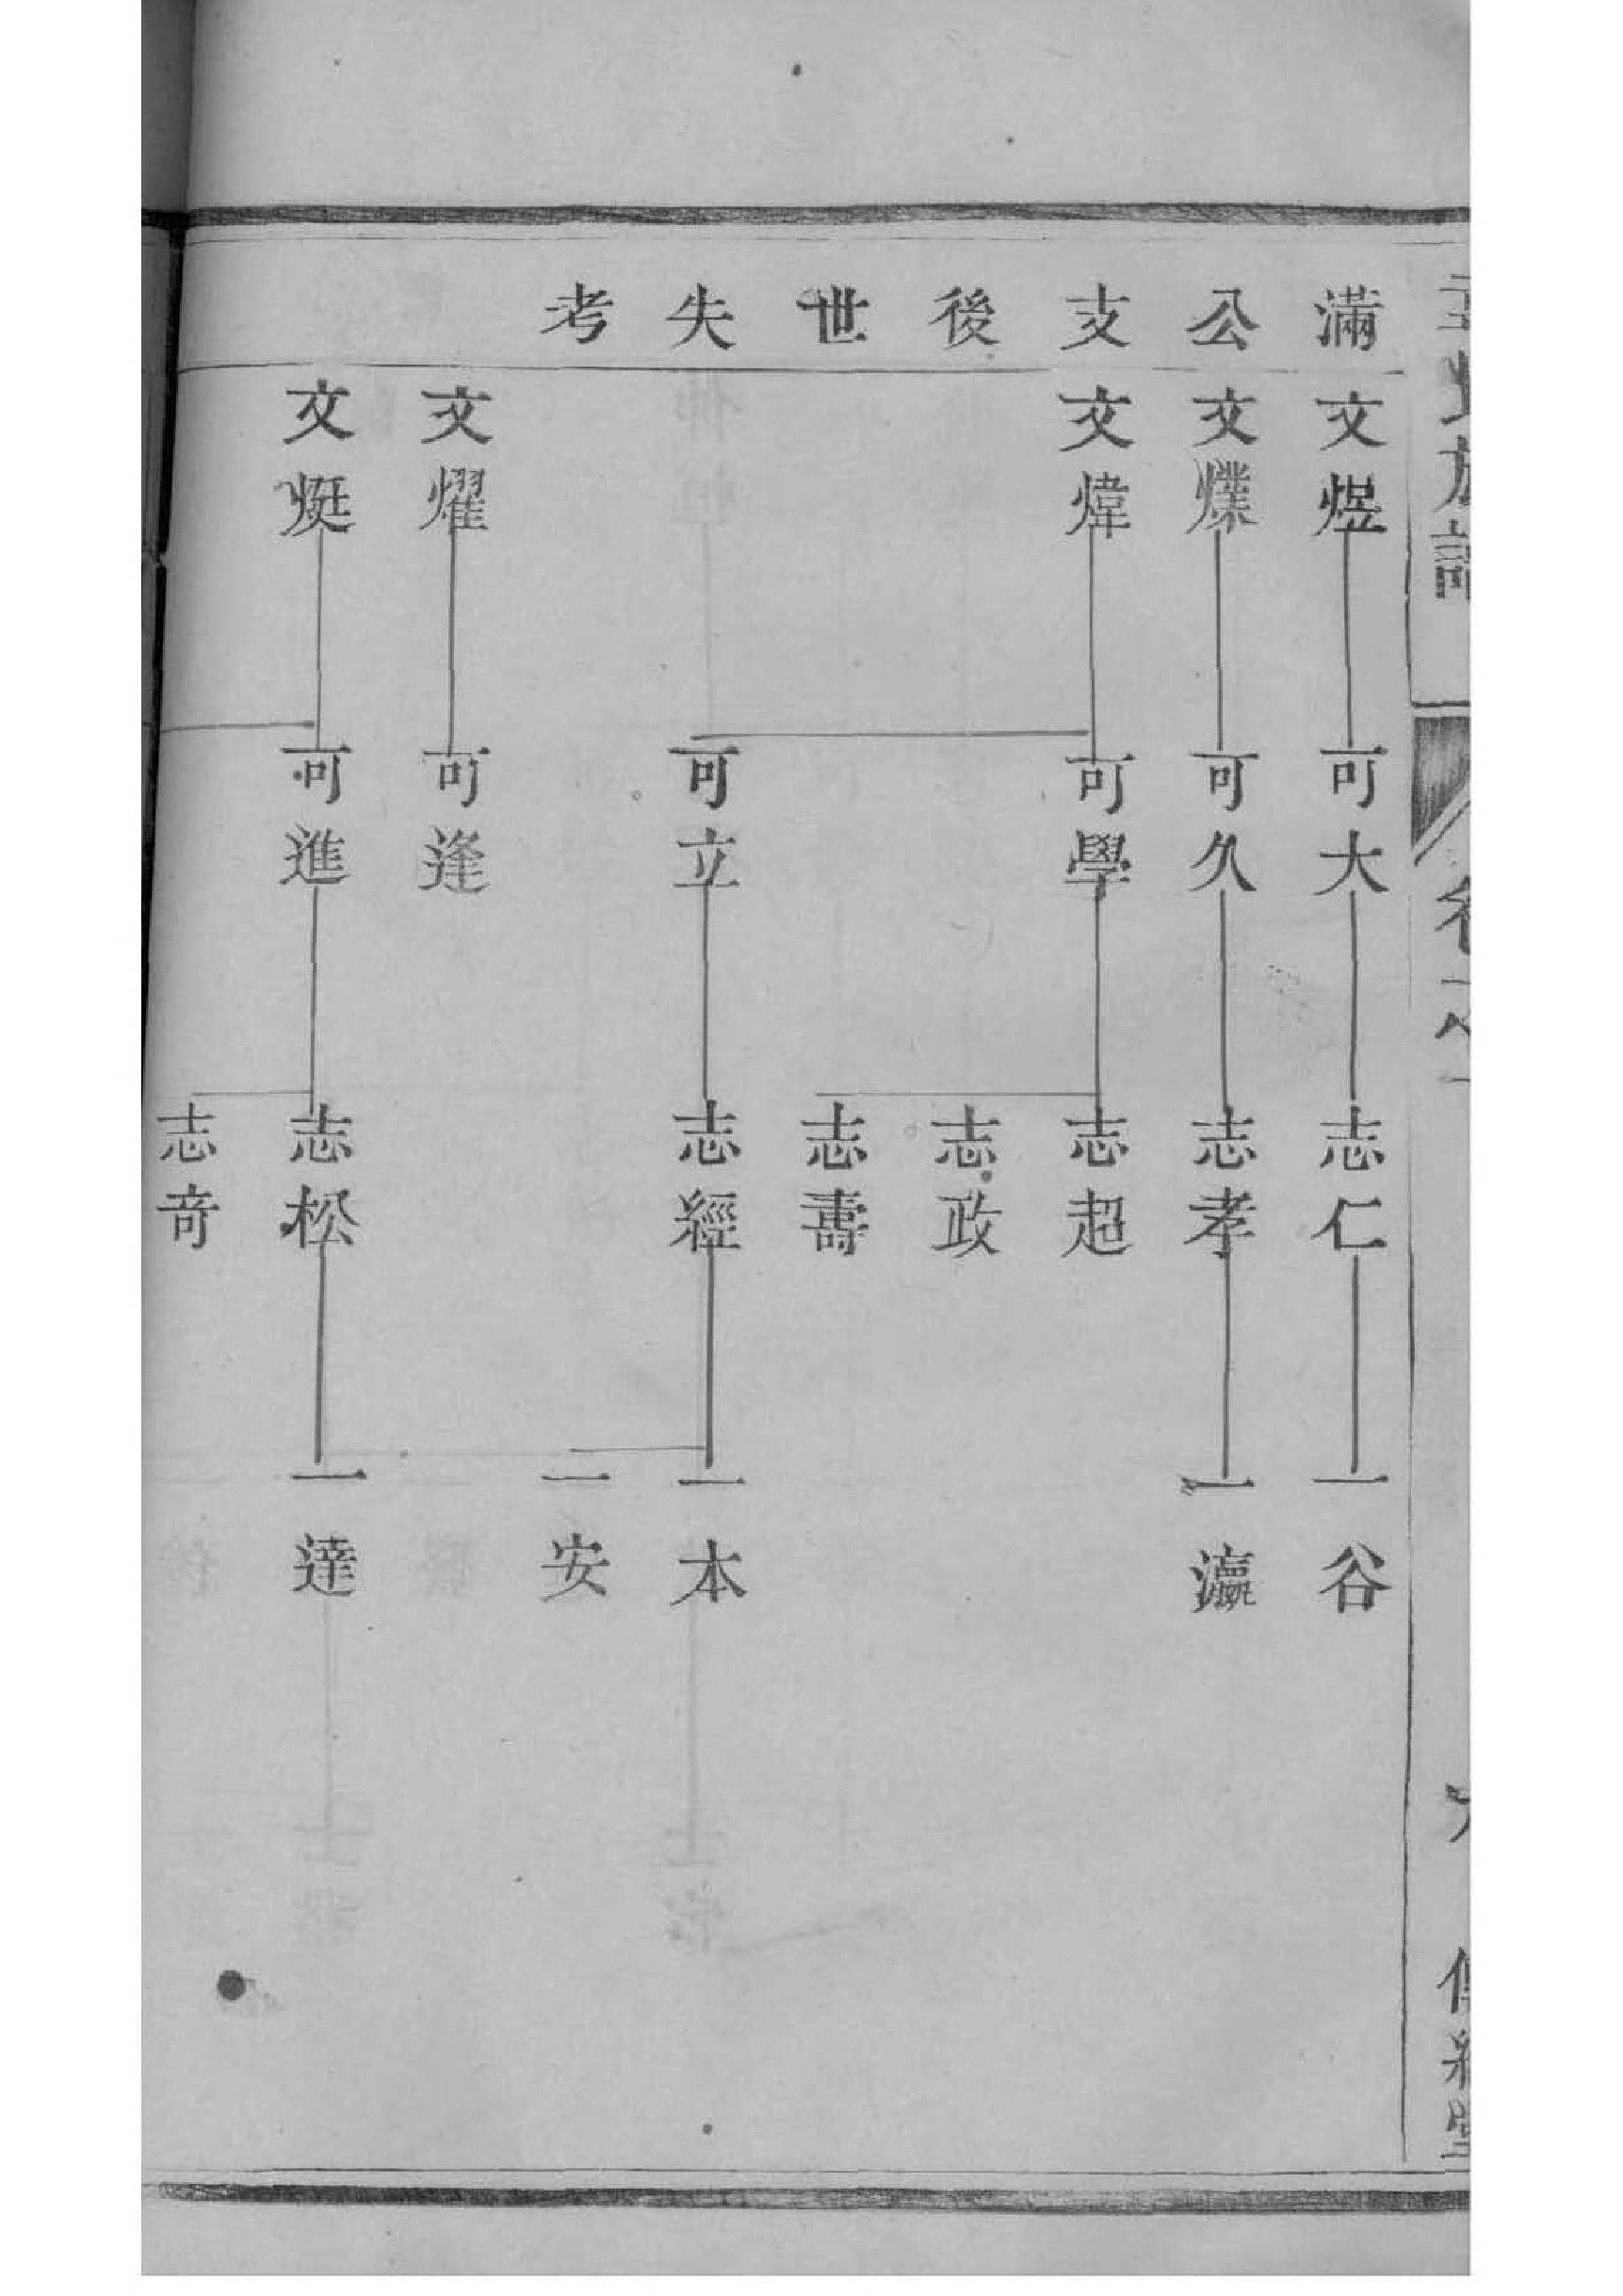 滿公支後世失考
文煜 可大 志仁 一谷
文爍 可久 志孝 一瀛
文煒 可學 志超
志政
志壽
可立 志經 一本
一安
文燿 可逢
文烶 可進 志松 一達
志奇